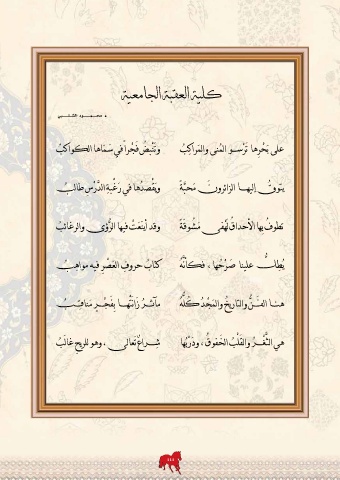 كلية العقبة الجامعية
د. محمود الشلبي
على بَحْرِها تَرْسو المُنى والمَراكِبُ وتَنْبضُ فَجْراً في سَمَاها الكواكبُ
يتوقُ إليها الزائرونَ مَحبَّةً ويقْصِدُها في رَغْبةِ الدَّرْسِ طالبُ
تطوفُ بها الأحداقُ لَهْفى مَشُوقةً وقد أينَعَتْ فيها الرُّؤى والرغائبُ
يُطِلُّ علينا صَرْحُها ، فكأنَّهُ كتابُ حروفِ العَصْرِ فيه مواهبُ
هنا الفَنُّ والتاريخُ والمَجْدُ كلُّهُ مآثرُ زانَتْها بِفَجْرٍ مناقبُ
هي الثَّغْرُ والقَلْبُ الخَفوقُ ، ودَرْبُها شِراعٌ تعالى ، وهو للريحِ غالبُ